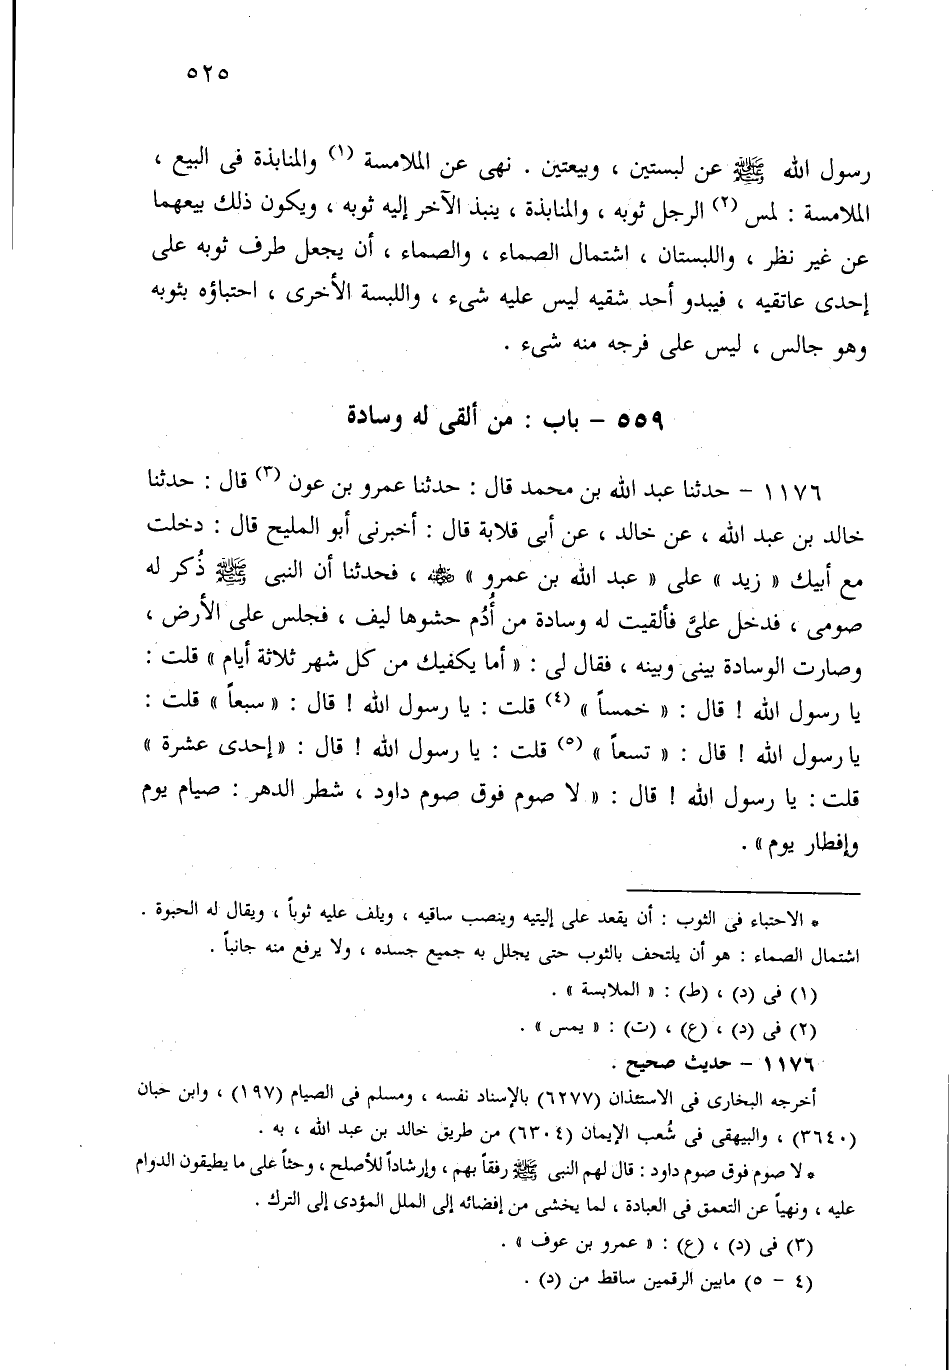 ٥٢٥
رسول الله ﷺ عن لبستين ، وبيعتين . نهى عن الملامسة (١) والمنابذة فى البيع ،
الملامسة : لمس (٢) الرجل ثوبه ، والمنابذة ، ينبذ الآخر إليه ثوبه ، ويكون ذلك بيعهما
عن غير نظر ، واللبستان ، اشتمال الصماء ، والصماء ، أن يجعل طرف ثوبه على
إحدى عاتقيه ، فيبدو أحد شقيه ليس عليه شىء ، واللبسة الأخرى ، احتباؤه بثوبه
وهو جالس ، ليس على فرجه منه شىء .
٥٥٩ – باب : من ألقى له وسادة
١١٧٦ – حدثنا عبد الله بن محمد قال : حدثنا عمرو بن عون (٣) قال : حدثنا
خالد بن عبد الله ، عن خالد ، عن أبى قلابة قال : أخبرنى أبو المليح قال : دخلت
مع أبيك « زيد » على « عبد الله بن عمرو » رضي الله عنه ، فحدثنا أن النبى ﷺ ذُكر له
صومى ، فدخل علىَّ فألقيت له وسادة من أُدُم حشوها ليف ، فجلس على الأرض ،
وصارت الوسادة بينى وبينه ، فقال لى : « أما يكفيك من كل شهر ثلاثة أيام » قلت :
يا رسول الله ! قال : « خمساً » (٤) قلت : يا رسول الله ! قال : « سبعاً » قلت :
يا رسول الله ! قال : « تسعاً » (٥) قلت : يا رسول الله ! قال : « إحدى عشرة »
قلت : يا رسول الله ! قال : « لا صوم فوق صوم داود ، شطر الدهر : صيام يوم
وإفطار يوم » .
* الاحتباء فى الثوب : أن يقعد على إليتيه وينصب ساقيه ، ويلف عليه ثوباً ، ويقال له الحبوة .
اشتمال الصماء : هو أن يلتحف بالثوب حتى يجلل به جميع جسده ، ولا يرفع منه جانباً .
(١) فى (د) ، (ط) : « الملابسة » .
(٢) فى (د) ، (ع) ، (ت) : « يمس » .
١١٧٦ – حديث صحيح .
أخرجه البخارى فى الاستئذان (٦٢٧٧) بالإسناد نفسه ، ومسلم فى الصيام (١٩٧) ، وابن حبان
(٣٦٤٠) ، والبيهقى فى شُعب الإيمان (٦٣٠٤) من طريق خالد بن عبد الله ، به .
* لا صوم فوق صوم داود : قال لهم النبى ﷺ رفقاً بهم ، وإرشاداً للأصلح ، وحثاً على ما يطيقون الدوام
عليه ، ونهياً عن التعمق فى العبادة ، لما يخشى من إفضائه إلى الملل المؤدى إلى الترك .
(٣) فى (د) ، (ع) : « عمرو بن عوف » .
(٤ – ٥) مابين الرقمين ساقط من (د) .